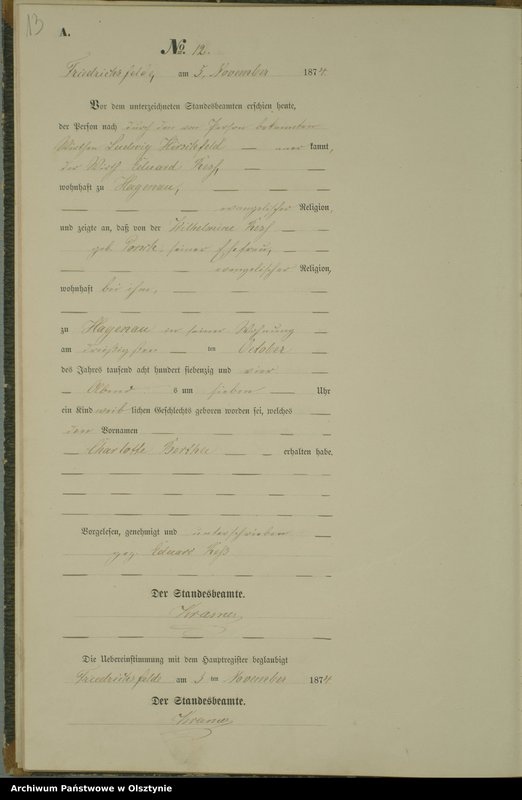 13
A.
No. 12.
Friedrichsfelde, am 5. November 1874.
Vor dem unterzeichneten Standesbeamten erschien heute,
der Person nach durch den von Person bekannten
Wirthen Ludwig Hirschfeld kannt,
der Wirth Eduard
wohnhaft zu Hagenau,
evangelischer Religion,
und zeigte an, daß von der Wilhelmine
geb. seiner Ehefrau,
evangelischer Religion,
wohnhaft bei ihm,
zu Hagenau in seiner Wohnung
am dreißigsten ten October
des Jahres tausend acht hundert siebenzig und vier
Abend s um sieben Uhr
ein Kind weib lichen Geschlechts geboren worden sei, welches
den Vornamen
Charlotte Berthe erhalten habe.
Vorgelesen, genehmigt und unterschrieben
gez. Eduard
Der Standesbeamte.
Kramer
Die Uebereinstimmung mit dem Hauptregister beglaubigt
Friedrichsfelde am 5 ten November 1874
Der Standesbeamte.
Kramer
Archiwum Państwowe w Olsztynie